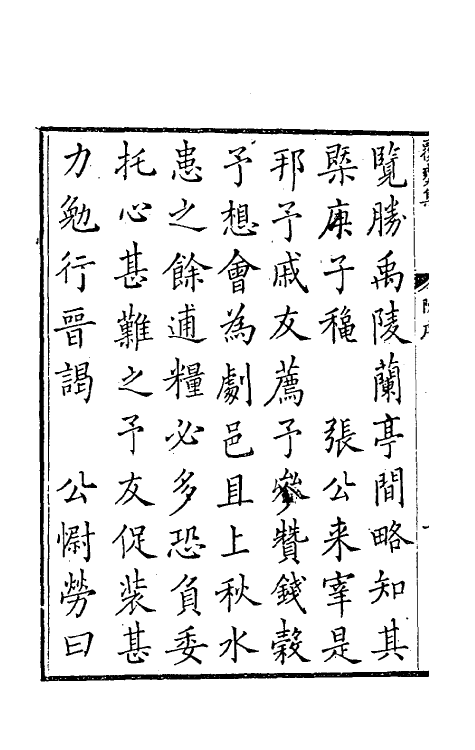 覽勝禹陵蘭亭間略知其
槩庚子穐　張公来宰是
邦予戚友薦予參贊錢穀
予想會為劇邑且上秋水
患之餘逋糧必多恐負委
托心甚難之予友促裝甚
力勉行晉謁　公慰勞曰